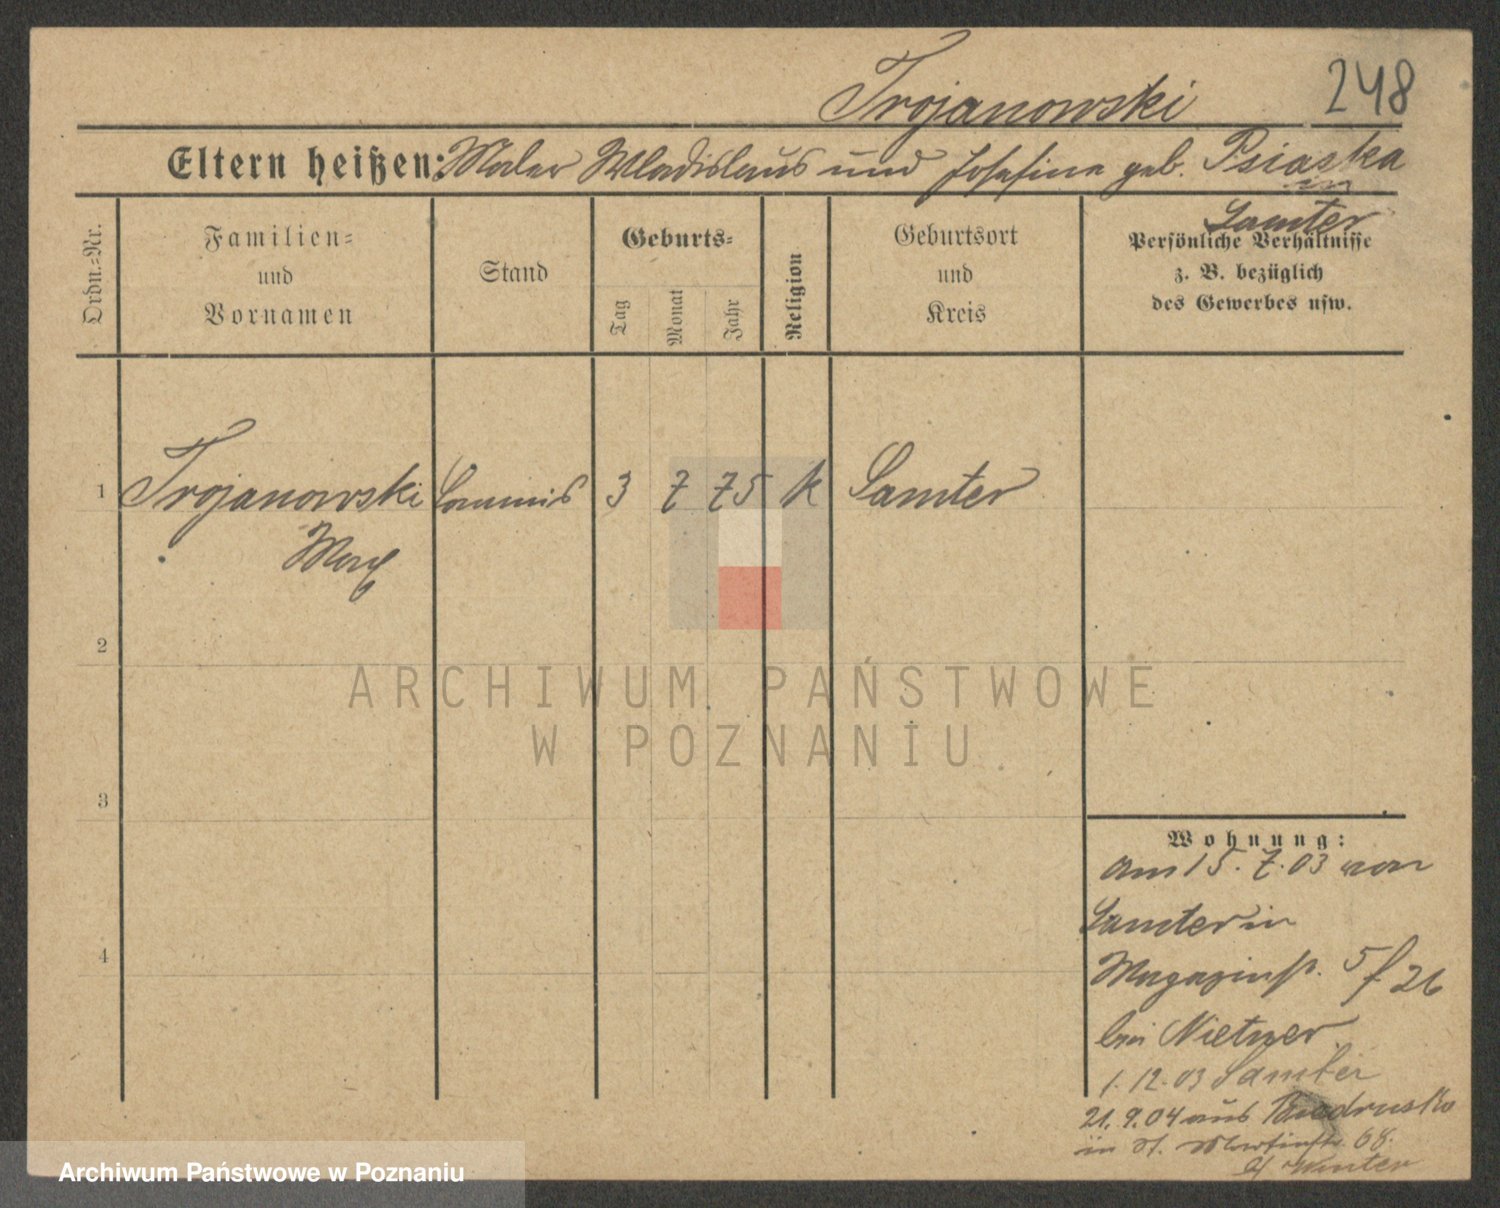 Trojanowski 248
Eltern heißen: Maler Wladislaus und Josefine geb. Psiaska
in
Samter
Ordn.=Nr.
Familien=
und
Vornamen
Stand
Geburts=
Tag
Monat
Jahr
Religion
Geburtsort
und
Kreis
Persönliche Verhältnisse
z. B. bezüglich
des Gewerbes usw.
1 Trojanowski Commis 3 7 75 k Samter
Max
2
3
4
Wohnung:
am 15. 7. 03 von
Samter in
Magazinstr. 5 f 26
bei Nietzer.
1. 12. 03 Samter
21. 9. 04 aus
in St. Martinstr. 68.
ARCHIWUM PAŃSTWOWE
W POZNANIU
Archiwum Państwowe w Poznaniu